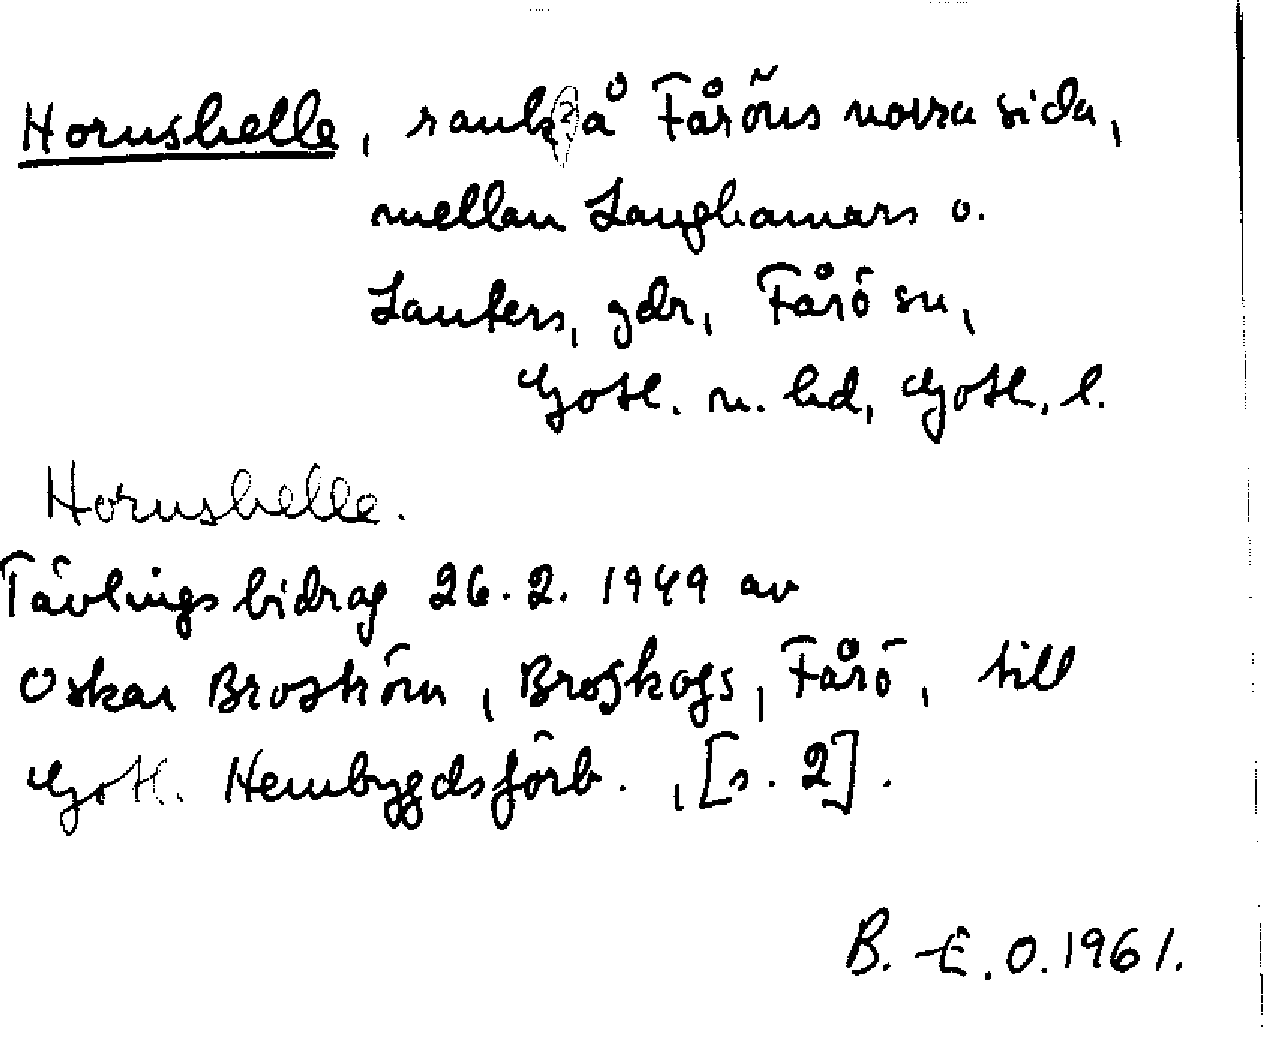 Hornshelle, rauk(?) å Fåröns norra sida,
mellan Langhamars o.
Lauters, gdr, Fårö sn,
Gotl. n. hd, Gotl. l.
Hornshelle.
Tävlingsbidrag 26.2. 1949 av
Oskar Broström, Broskogs, Fårö, till
Gotl. Hembygdsförb., [s. 2].
B.-E.O. 1961.